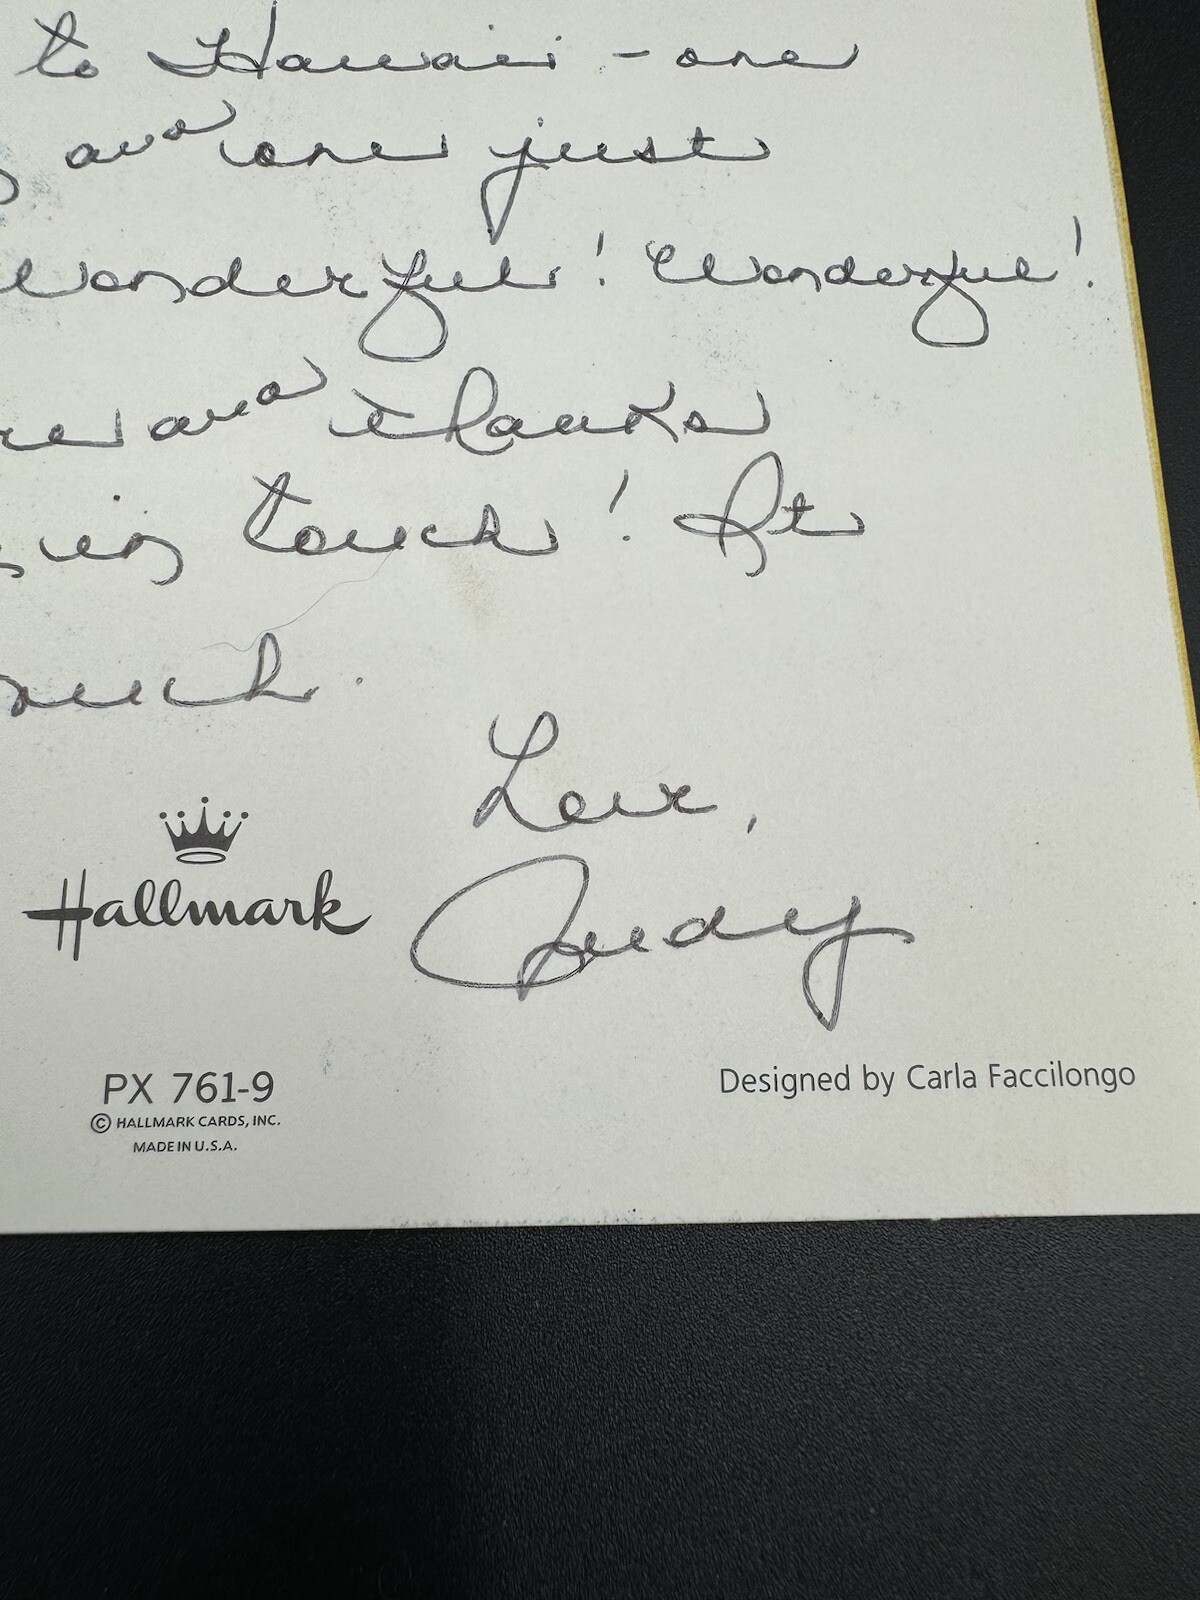 to Hawaii - one
and one just
Wonderful! Wonderful!
and thanks
in touch! It
much.
Love,
Judy
Hallmark
PX 761-9
© HALLMARK CARDS, INC.
MADE IN U.S.A.
Designed by Carla Faccilongo